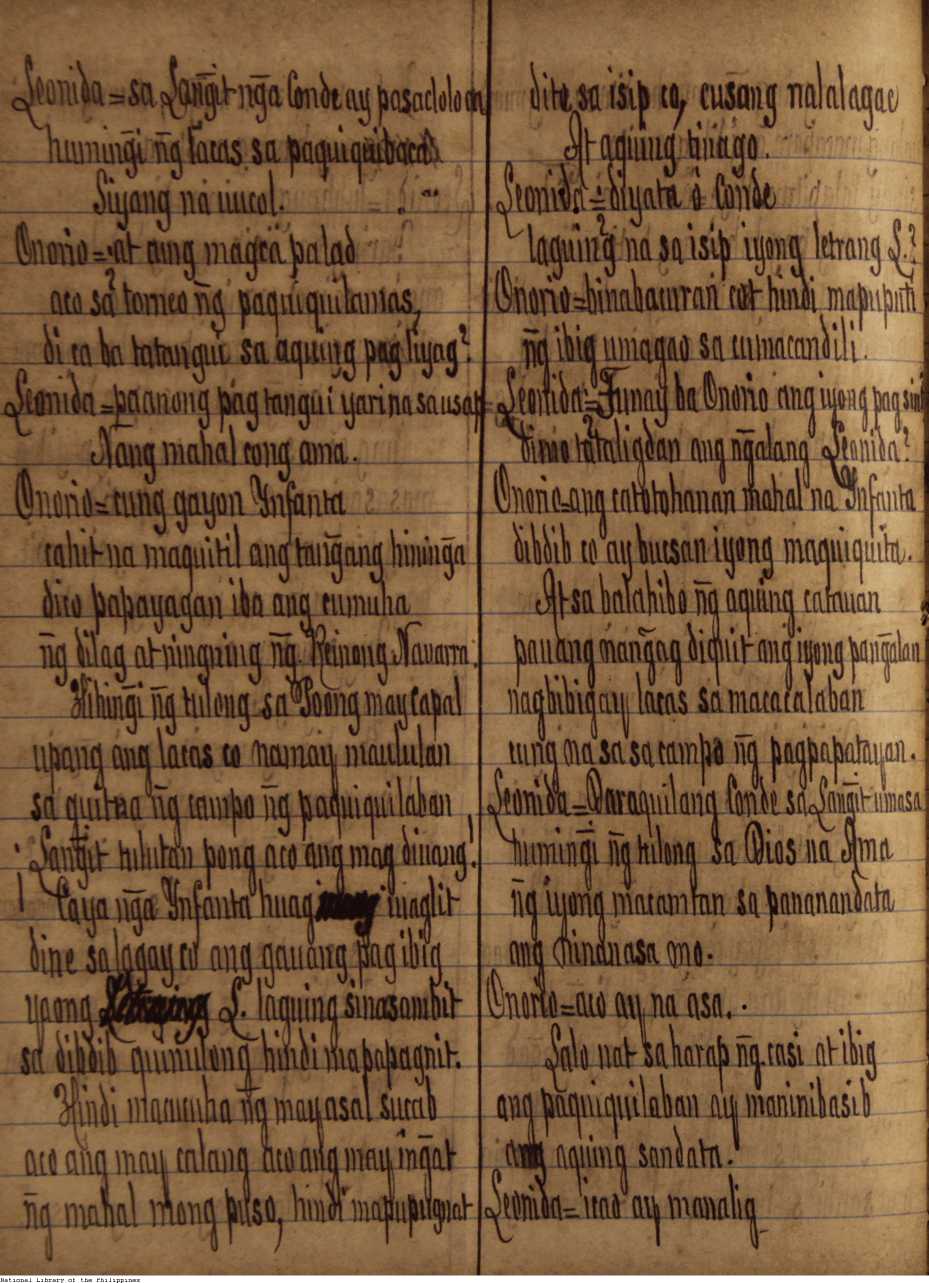 Leonida = sa Lang̃it ng̃a Conde ay pasaclolo ca
huming̃i ng̃ lacas sa paquiquibaca
Siyang na uucol.
Onorio = at aing magca palad
aco sa torneo ng̃ paquiquilamas,
di ca ba tatangui sa aquing pagliyag?
Leonida = paanong pag tangui yari na sa usap =
Nang mahal cong ama.
Onorio = cung gayon Ynfanta
cahit na maquitil ang tang̃ang hining̃a
dico papayagan iba ang cumuha
ng̃ dilag at ningning ng̃ Reinong Navarra.
Hihing̃i ng̃ tulong sa Poong may capal
upang ang lacas co namay maululan
sa guitna ng̃ campo ng̃ paquiquilaban
¡Lang̃it tulutan pong aco ang mag diuang!
! Caya ng̃a Ynfanta huag maglit
dine sa lagay co ang gauang pag ibig
yaong L. laguing sinasambit
sa dibdib gumulong hindi mapapagnit.
Hindi macucuha ng̃ may asal sucab
aco ang may calang aco ang may ing̃at
ng̃ mahal mong puso, hindi mapupugnat
dito sa isip co, cusang nalalagac
At aquing tinago.
Leonida = diyata ó Conde
laguing na sa isip iyong letrang L.?
Onorio = binabacuran cot hindi mapuputi
ng̃ ibig umagao sa cumacandili.
Leonida = Tunay ba Onorio ang iyong pag
dimo tataligdan ang ng̃alang Leonida?
Onorio = ang catotohanan mahal na Ynfanta
dibdib co ay bucsan iyong maquiquita.
At sa balahibo ng̃ aquing catauan
pauang nang̃ag diquit ang iyong pang̃alan
nagbibigay lacas sa macacalaban
cung na sa sa campo ng̃ pagpapatayan.
Leonida = Daraquilang Conde sa Lang̃it umasa
huming̃i ng̃ tulong sa Dios na Ama
ng̃ iyong macamtan sa pananandata
ang ninanasa mo.
Onorio = aco ay na asa.
Lalo nat sa harap ng̃ casi at ibig
ang paquiquilaban ay maninibasib
ang aquing sandata.
Leonida = icao ay manalig
National Library of the Philippines